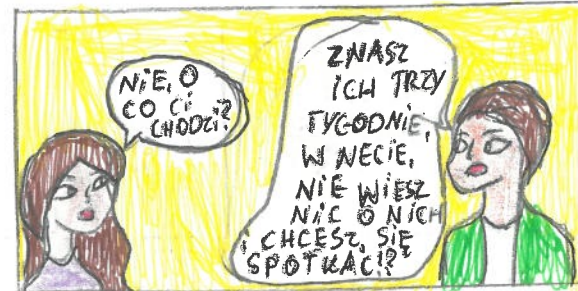 NIE, O
CO CI
CHODZI?
ZNASZ
ICH TRZY
TYGODNIE,
W NECIE,
NIE WIESZ
NIC O NICH
I CHCESZ SIĘ
SPOTKAĆ!?